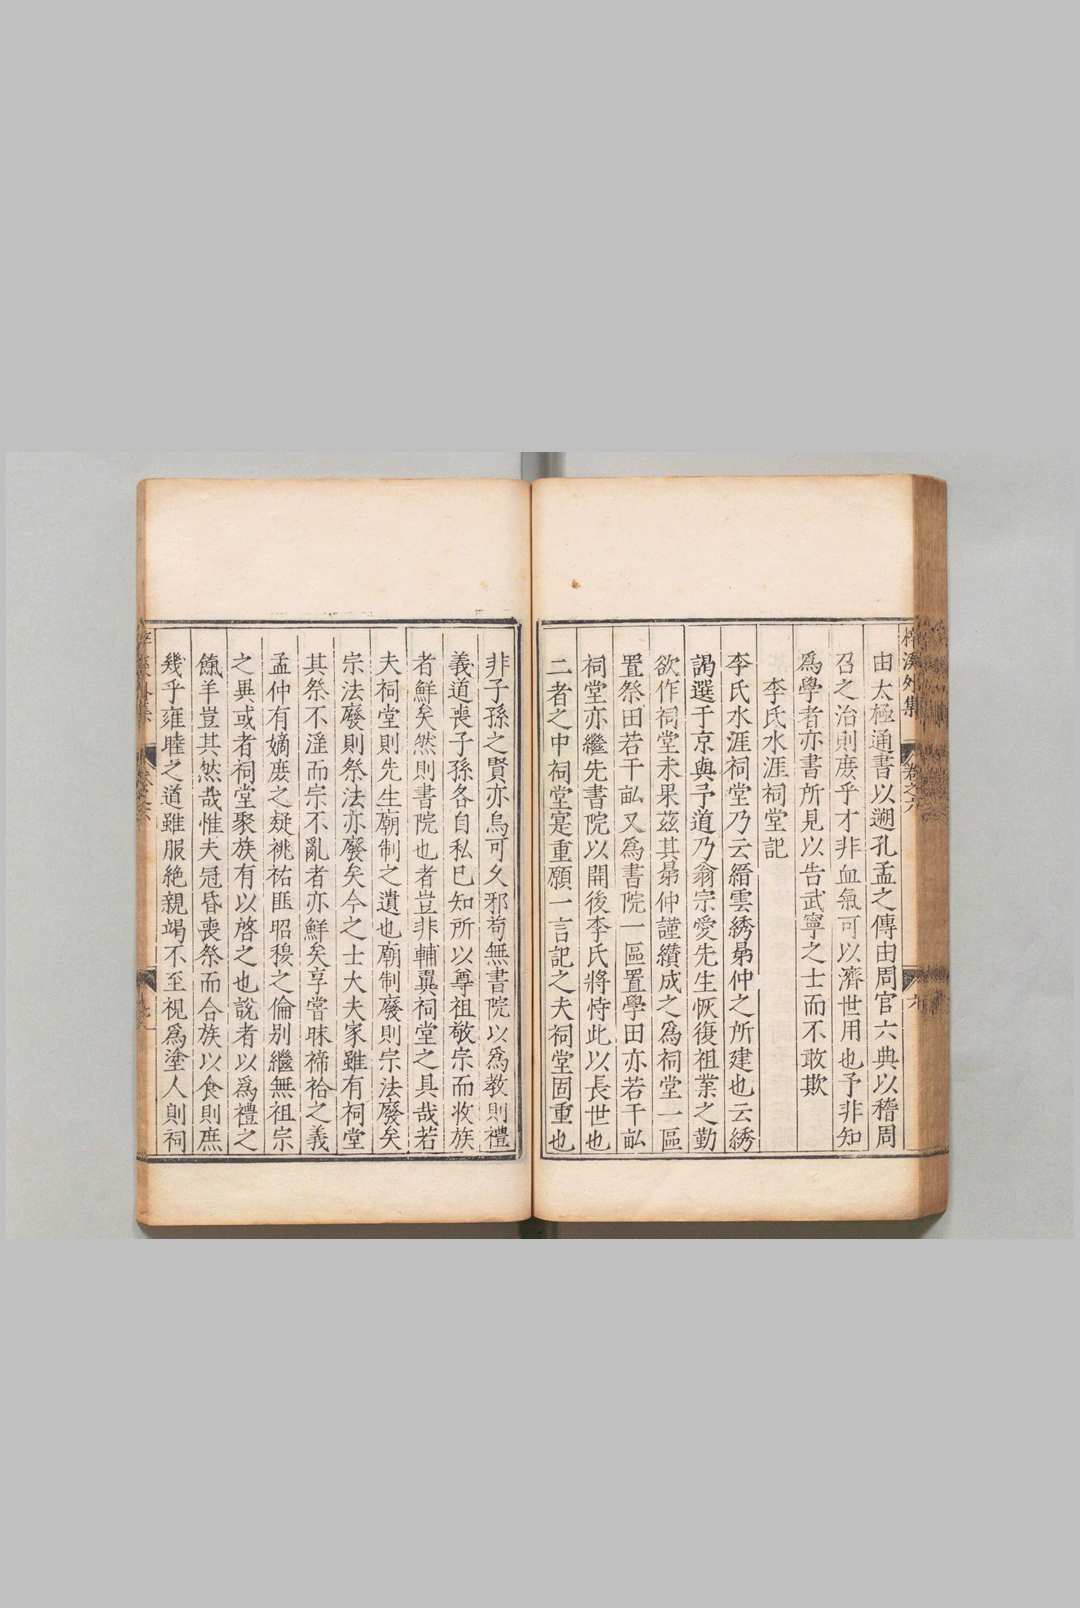 梓溪外集
卷之六
六
由太極通書以遡孔孟之傳由周官六典以稽周
召之治則庻乎才非血氣可以濟世用也予非知
爲學者亦書所見以告武寧之士而不敢欺
李氏水涯祠堂記
李氏水涯祠堂乃云縉雲綉昴仲之所建也云綉
謁選于京與予道乃翁宗愛先生恢復祖業之勤
欲作祠堂未果茲其昴仲謹纘成之爲祠堂一區
置祭田若干畆又爲書院一區置學田亦若干畆
祠堂亦繼先書院以開後李氏將恃此以長世也
二者之中祠堂寔重願一言記之夫祠堂固重也
非子孫之賢亦烏可久邪苟無書院以爲教則禮
義道喪子孫各自私已知所以尊祖敬宗而收族
者鮮矣然則書院也者豈非輔翼祠堂之具哉若
夫祠堂則先生廟制之遺也廟制廢則宗法廢矣
宗法廢則祭法亦廢矣今之士大夫家雖有祠堂
其祭不滛而宗不亂者亦鮮矣享嘗昧禘祫之義
孟仲有嫡庻之疑祧祐匪昭穆之倫别繼無祖宗
之異或者祠堂聚族有以啓之也說者以爲禮之
餼羊豈其然哉惟夫冠昏喪祭而合族以食則庶
幾乎雍睦之道雖服絶親竭不至視爲塗人則祠